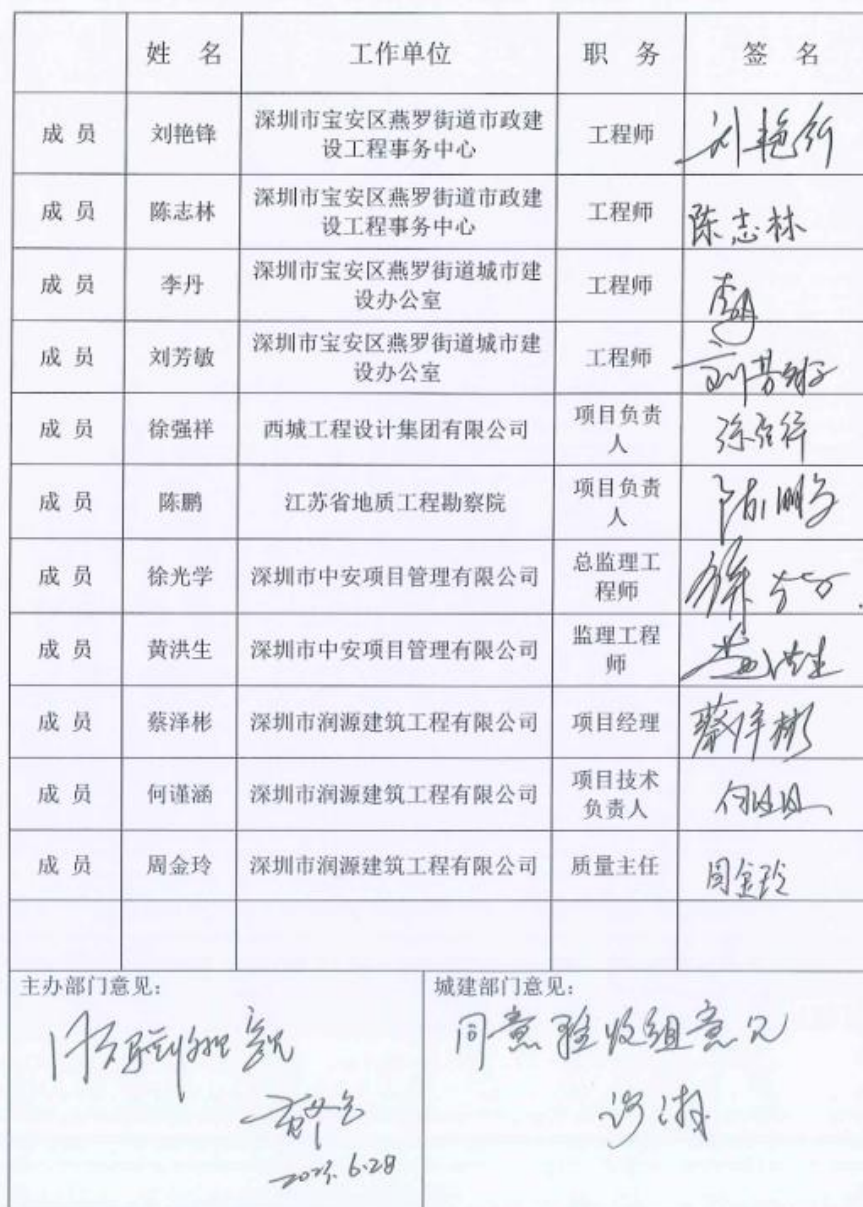 姓 名 工作单位 职 务 签 名
成 员 刘艳锋 深圳市宝安区燕罗街道市政建 工程师 刘艳锋
设工程事务中心
成 员 陈志林 深圳市宝安区燕罗街道市政建 工程师 陈志林
设工程事务中心
成 员 李丹 深圳市宝安区燕罗街道城市建 工程师 李丹
设办公室
成 员 刘芳敏 深圳市宝安区燕罗街道城市建 工程师 刘芳敏
设办公室
成 员 徐强祥 西城工程设计集团有限公司 项目负责
人
成 员 陈鹏 江苏省地质工程勘察院 项目负责 陈鹏
人
成 员 徐光学 深圳市中安项目管理有限公司 总监理工
程师
成 员 黄洪生 深圳市中安项目管理有限公司 监理工程 黄洪生
师
成 员 蔡泽彬 深圳市润源建筑工程有限公司 项目经理 蔡泽彬
成 员 何谨涵 深圳市润源建筑工程有限公司 项目技术
负责人
成 员 周金玲 深圳市润源建筑工程有限公司 质量主任 周金玲
主办部门意见： 城建部门意见：
同意验收组意见
6.28